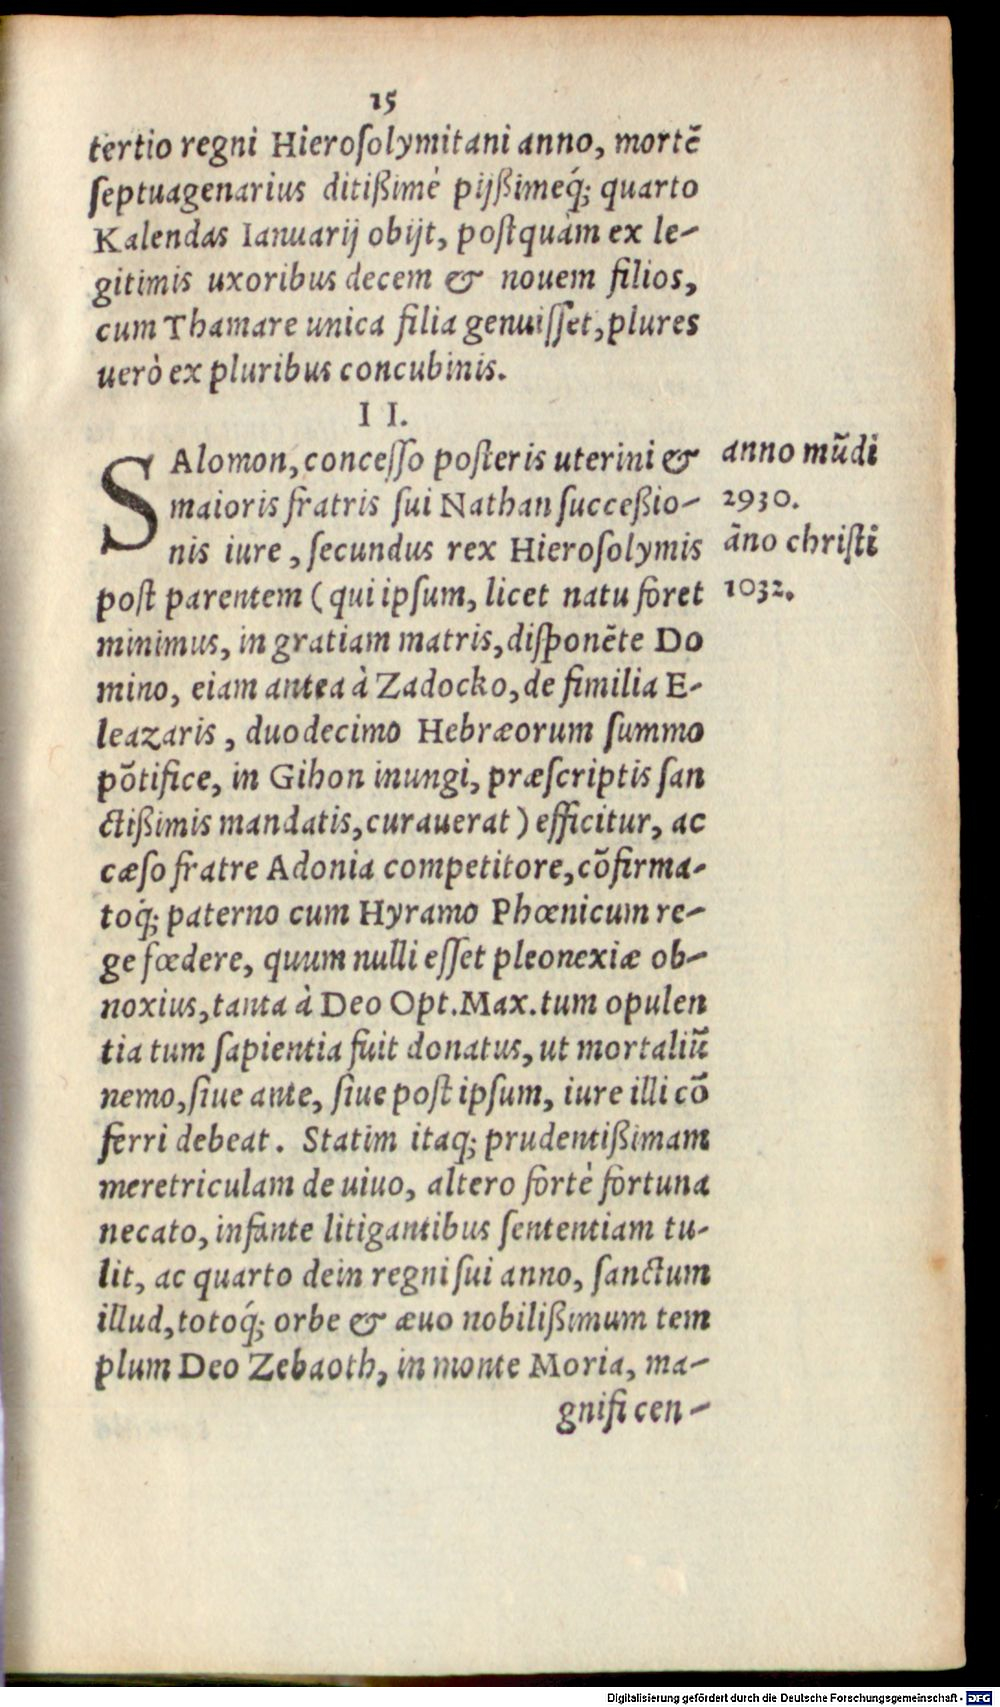 15
tertio regni Hieroſolymitani anno, mortē
ſeptuagenarius ditißimè pijßimeq́; quarto
Kalendas Ianuarij obijt, poſtquàm ex le-
gitimis uxoribus decem & nouem filios,
cum Thamare unica filia genuiſſet, plures
uerò ex pluribus concubinis.
II.
SAlomon, conceſſo poſteris uterini &
maioris fratris ſui Nathan ſucceßio-
nis iure, ſecundus rex Hieroſolymis
poſt parentem (qui ipſum, licet natu foret
minimus, in gratiam matris, diſponēte Do
mino, eiam antea à Zadocko, de fimilia E-
leazaris, duodecimo Hebræorum ſummo
pōtifice, in Gihon inungi, præſcriptis ſan
ctißimis mandatis, curauerat) efficitur, ac
cæſo fratre Adonia competitore, cōfirma-
toq́; paterno cum Hyramo Phœnicum re-
ge fœdere, quum nulli eſſet pleonexiæ ob-
noxius, tanta à Deo Opt. Max. tum opulen
tia tum ſapientia fuit donatus, ut mortaliū
nemo, ſiue ante, ſiue poſt ipſum, iure illi cō
ferri debeat. Statim itaq; prudentißimam
meretriculam de uiuo, altero fortè fortuna
necato, infante litigantibus ſententiam tu-
lit, ac quarto dein regni ſui anno, ſanctum
illud, totoq́; orbe & æuo nobilißimum tem
plum Deo Zebaoth, in monte Moria, ma-
gnificen-
anno mūdi
2930.
āno chriſti
1032.
Digitalisierung gefördert durch die Deutsche Forschungsgemeinschaft - DFG